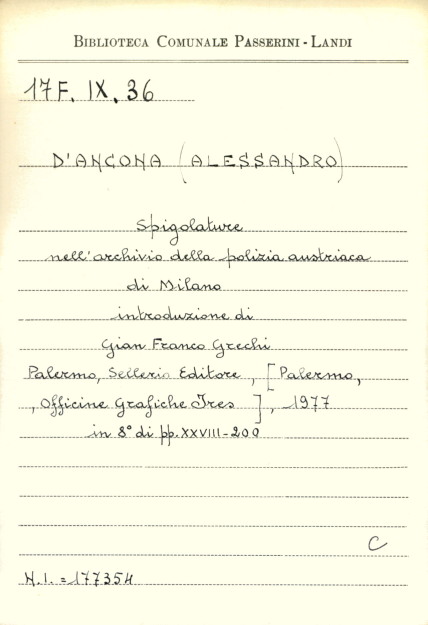 BIBLIOTECA COMUNALE PASSERINI - LANDI
17F. IX. 36
D'ANCONA (ALESSANDRO)
Spigolature
nell'archivio della polizia austriaca
di Milano
introduzione di
Gian Franco Grechi
Palermo, Sellerio Editore, [Palermo,
, Officine Grafiche Ires], 1977
in 8° di pp. XXVIII-200
C
N.I. = 177354